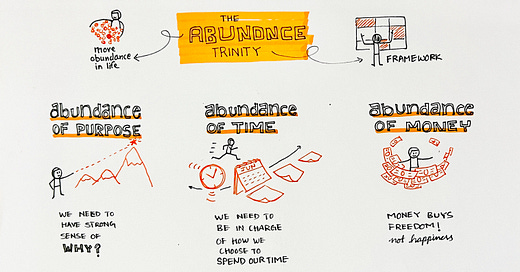 THE
ABUNDNCE
TRINITY
more
abundance
in life
FRAMEWORK
abundance
OF PURPOSE
WE NEED TO
HAVE STRONG
SENSE OF
WHY?
abundance
OF TIME
SUN
WE NEED TO
BE IN CHARGE
OF HOW WE
CHOOSE TO
SPEND OUR TIME
abundance
OF MONEY
MONEY BUYS
FREEDOM!
not happiness